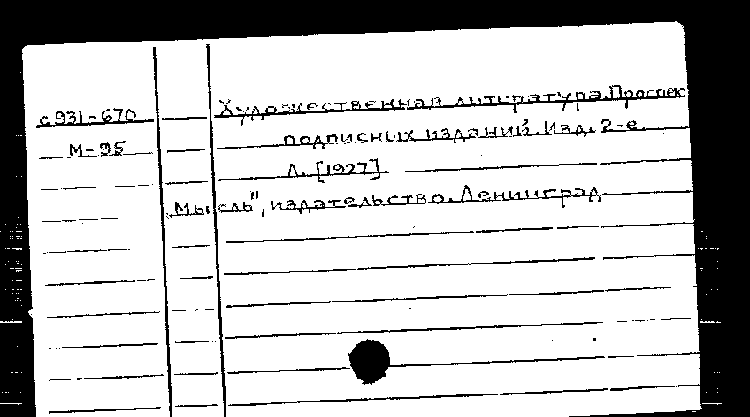 с931-670
М-95
Художественная литература. Проспек
подписных изданий. Изд. 2-е.
Л. [1927]
Мысль", издательство. Ленинград.